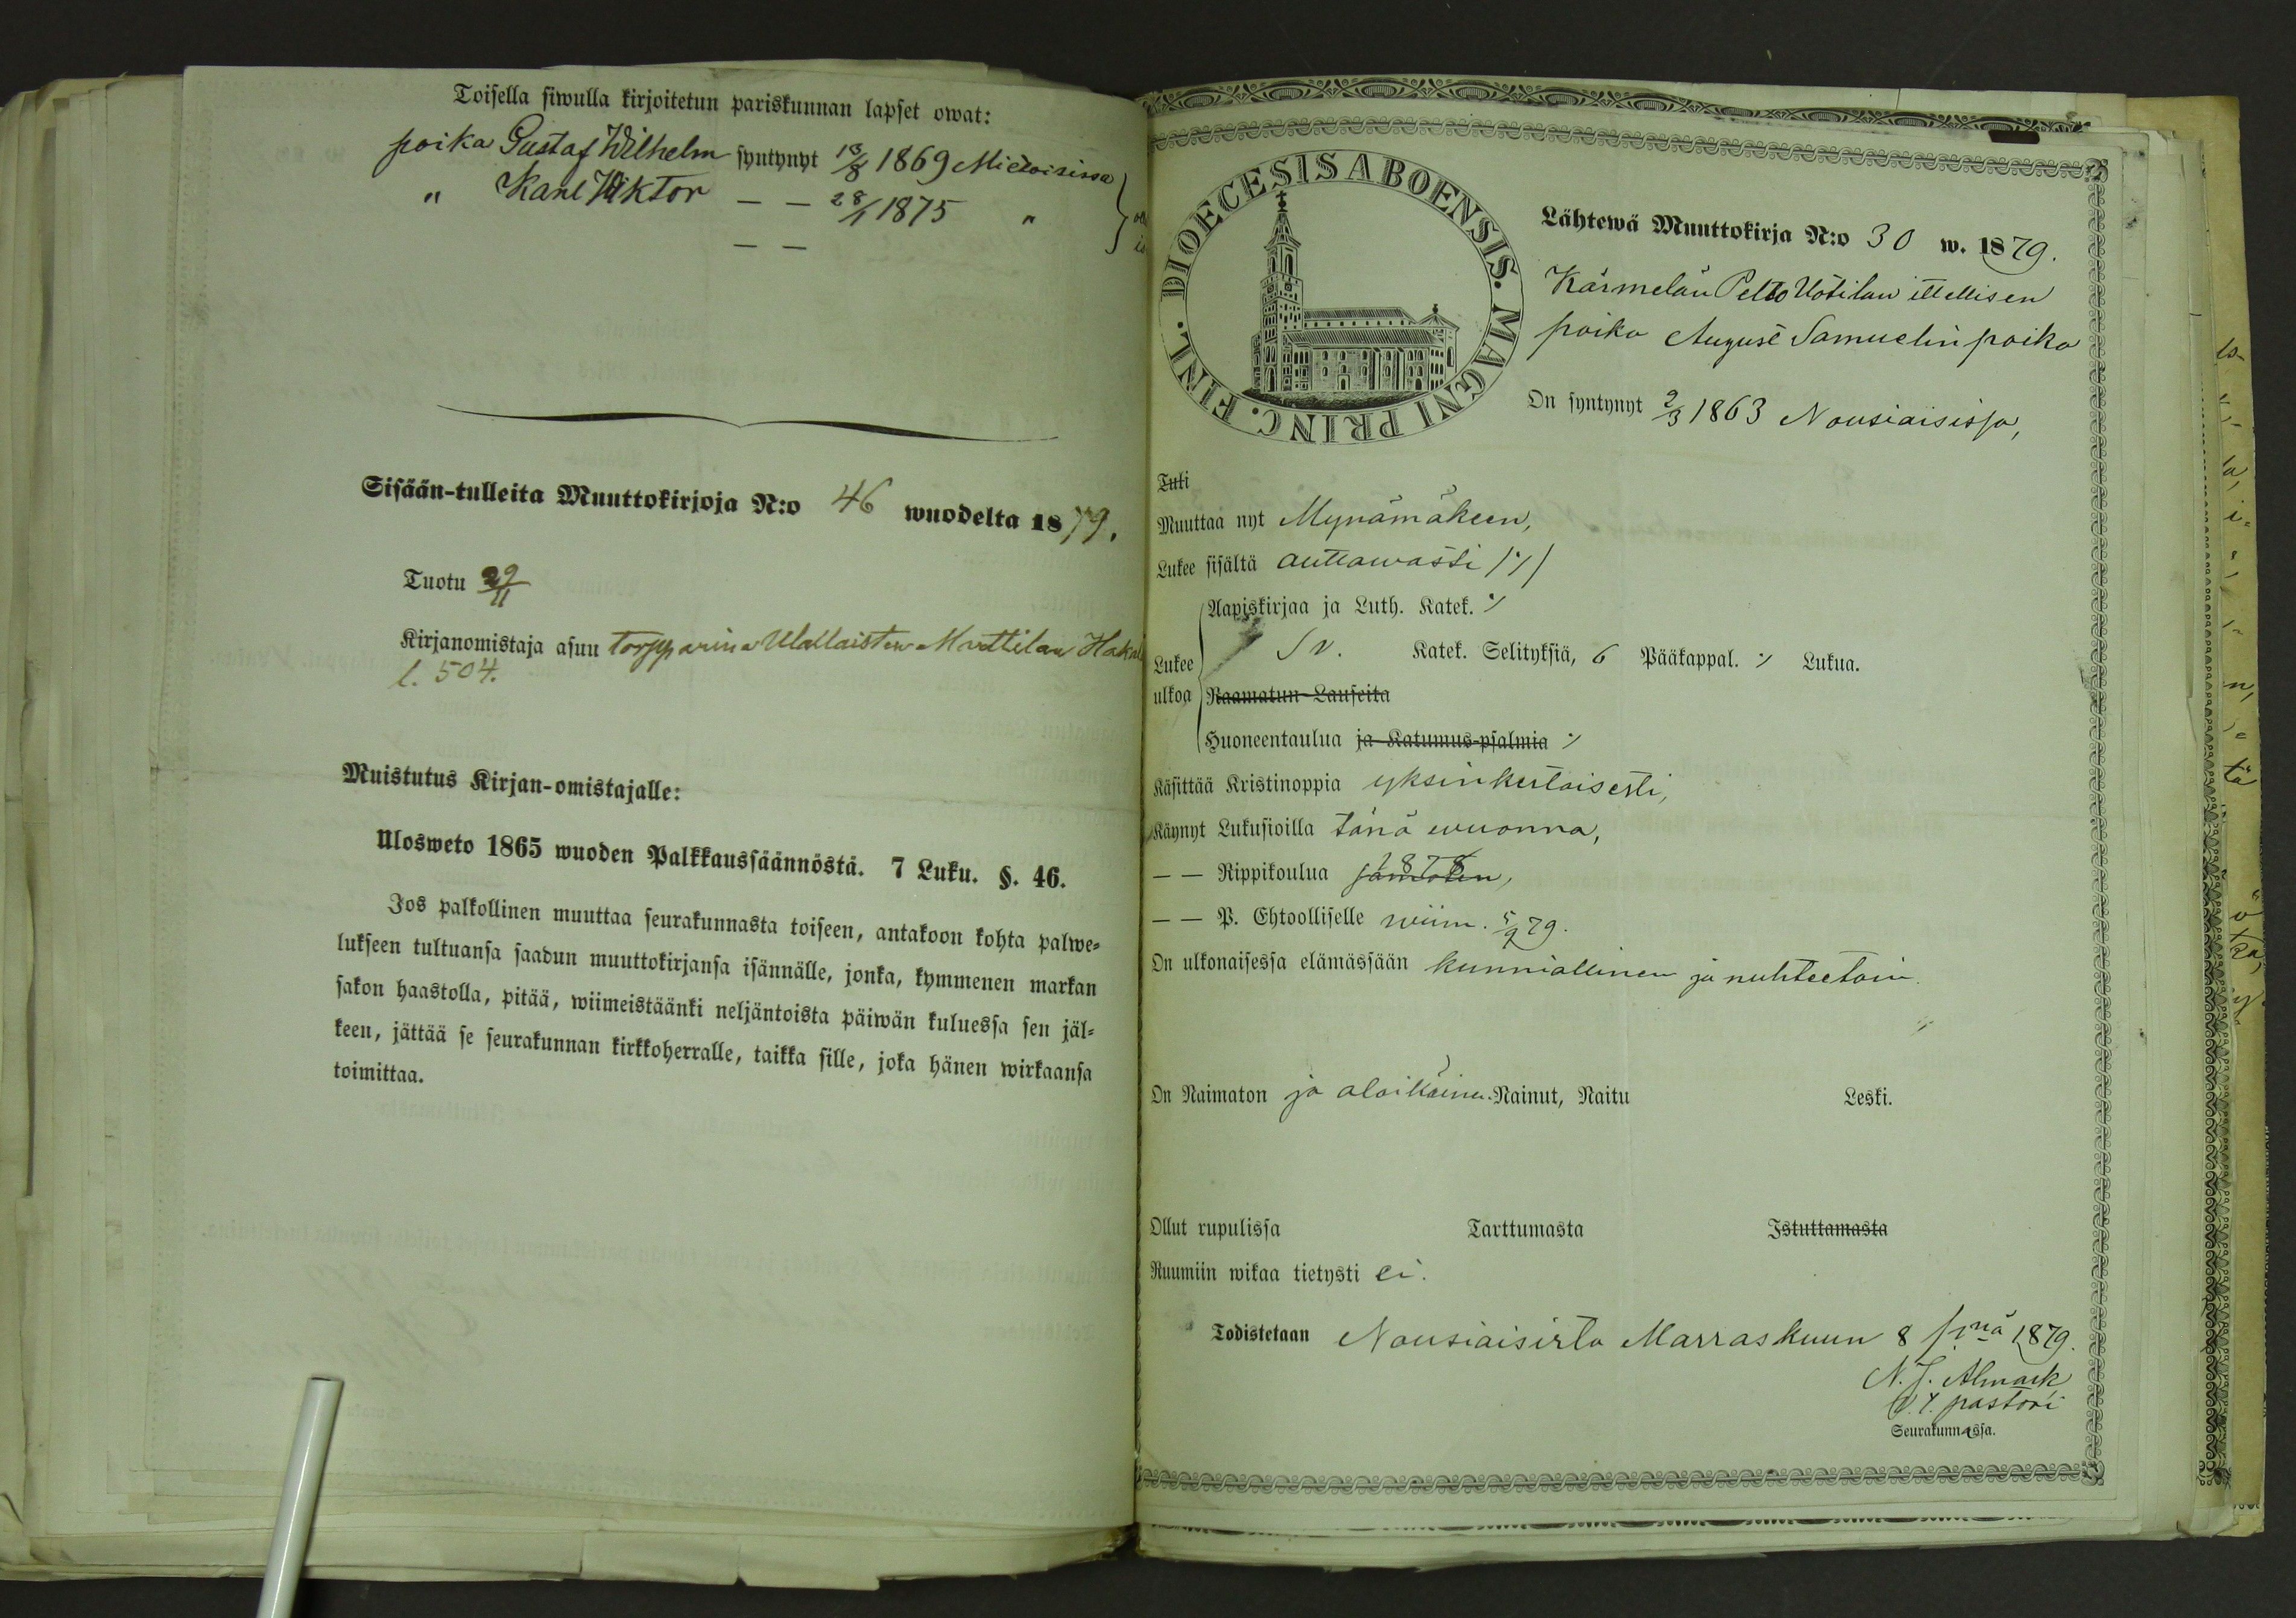 Toisella siwulla kirjoitetun pariskunnan lapset owat:
poika Gustaf Wilhelm syntynyt 13/8 1869 Mietoisissa
" Karl Wiktor — — 28/1 1875 "
— —
Sisään-tulleita Muuttokirjoja N:o 46 wuodelta 1879.
Tuotu 29/11
Kirjanomistaja asuu torpparina Wallaisten Marttilan
l. 504.
Muistutus Kirjan-omistajalle:
Ulosweto 1865 wuoden Palkkaussäännöstä. 7 Luku. §. 46.
Jos palkollinen muuttaa seurakunnasta toiseen, antakoon kohta palwe-
lukseen tultuansa saadun muuttokirjansa isännälle, jonka, kymmenen markan
sakon haastolla, pitää, wiimeistäänki neljäntoista päiwän kuluessa sen jäl-
keen, jättää se seurakunnan kirkkoherralle, taikka sille, joka hänen wirkaansa
toimittaa.
DIOECESIS ABOENSIS. MAGNI PRINC. FINL.
Lähtewä Muuttokirja N:o 30 w. 1879.
Kärmelän Pelto Uotilan itellisen
poika August Samuelin poika
On syntynyt 2/3 1863 Nousiaisissa,
Tuli
Muuttaa nyt Mynämäkeen,
Lukee sisältä auttawasti /./
Lukee ulkoa
Aapiskirjaa ja Luth. Katek. ./
Sv. Katek. Selityksiä, 6 Pääkappal. ./ Lukua.
Raamatun-Lauseita
Huoneentaulua ja Katumus-psalmia ./
Käsittää Kristinoppia yksinkertaisesti,
Käynyt Lukusioilla tänä wuonna,
— — Rippikoulua 1878
— — P. Ehtoolliselle wiim. 5/9 79.
On ulkonaisessa elämässään kunniallinen ja nuhteetoin.
On Naimaton ja alaikäinen. Nainut, Naitu Leski.
Ollut rupulissa Tarttumasta Istuttamasta
Ruumiin wikaa tietysti ei.
Todistetaan Nousiaisista Marraskuun 8 p:nä 1879.
N. J. Almark
V. t. pastori
Seurakunnassa.